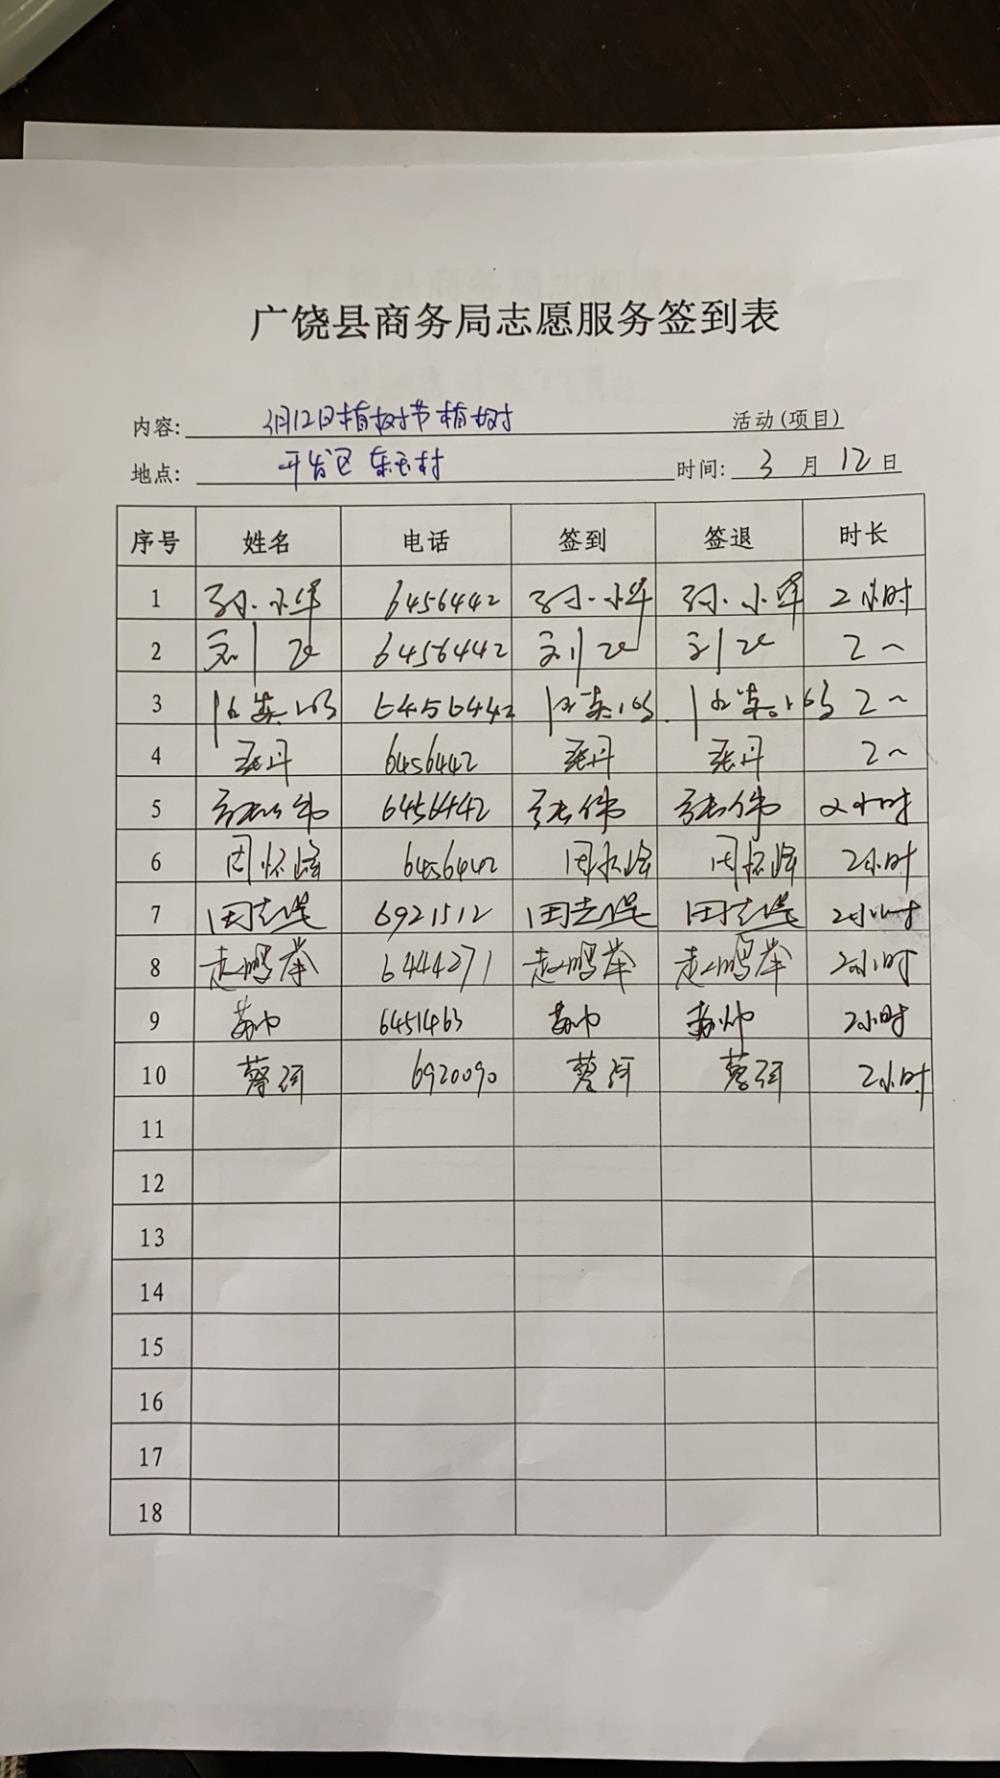 广饶县商务局志愿服务签到表
内容: 3月12日植树节植树 活动(项目)
地点: 开发区 村 时间: 3 月 12 日
序号 姓名 电话 签到 签退 时长
1 孙小军 6456442 孙小军 孙小军 2小时
2 刘 6456442 刘 刘 2~
3 6456442 2~
4 张丹 6456442 张丹 张丹 2~
5 张伟 6456442 张伟 张伟 2小时
6 周怀峰 6456442 周怀峰 周怀峰 2小时
7 田志 6921512 田志 田志 2小时
8 赵鹏举 6444271 赵鹏举 赵鹏举 2小时
9 苏帅 6451463 苏帅 苏帅 2小时
10 6920090 2小时
11
12
13
14
15
16
17
18